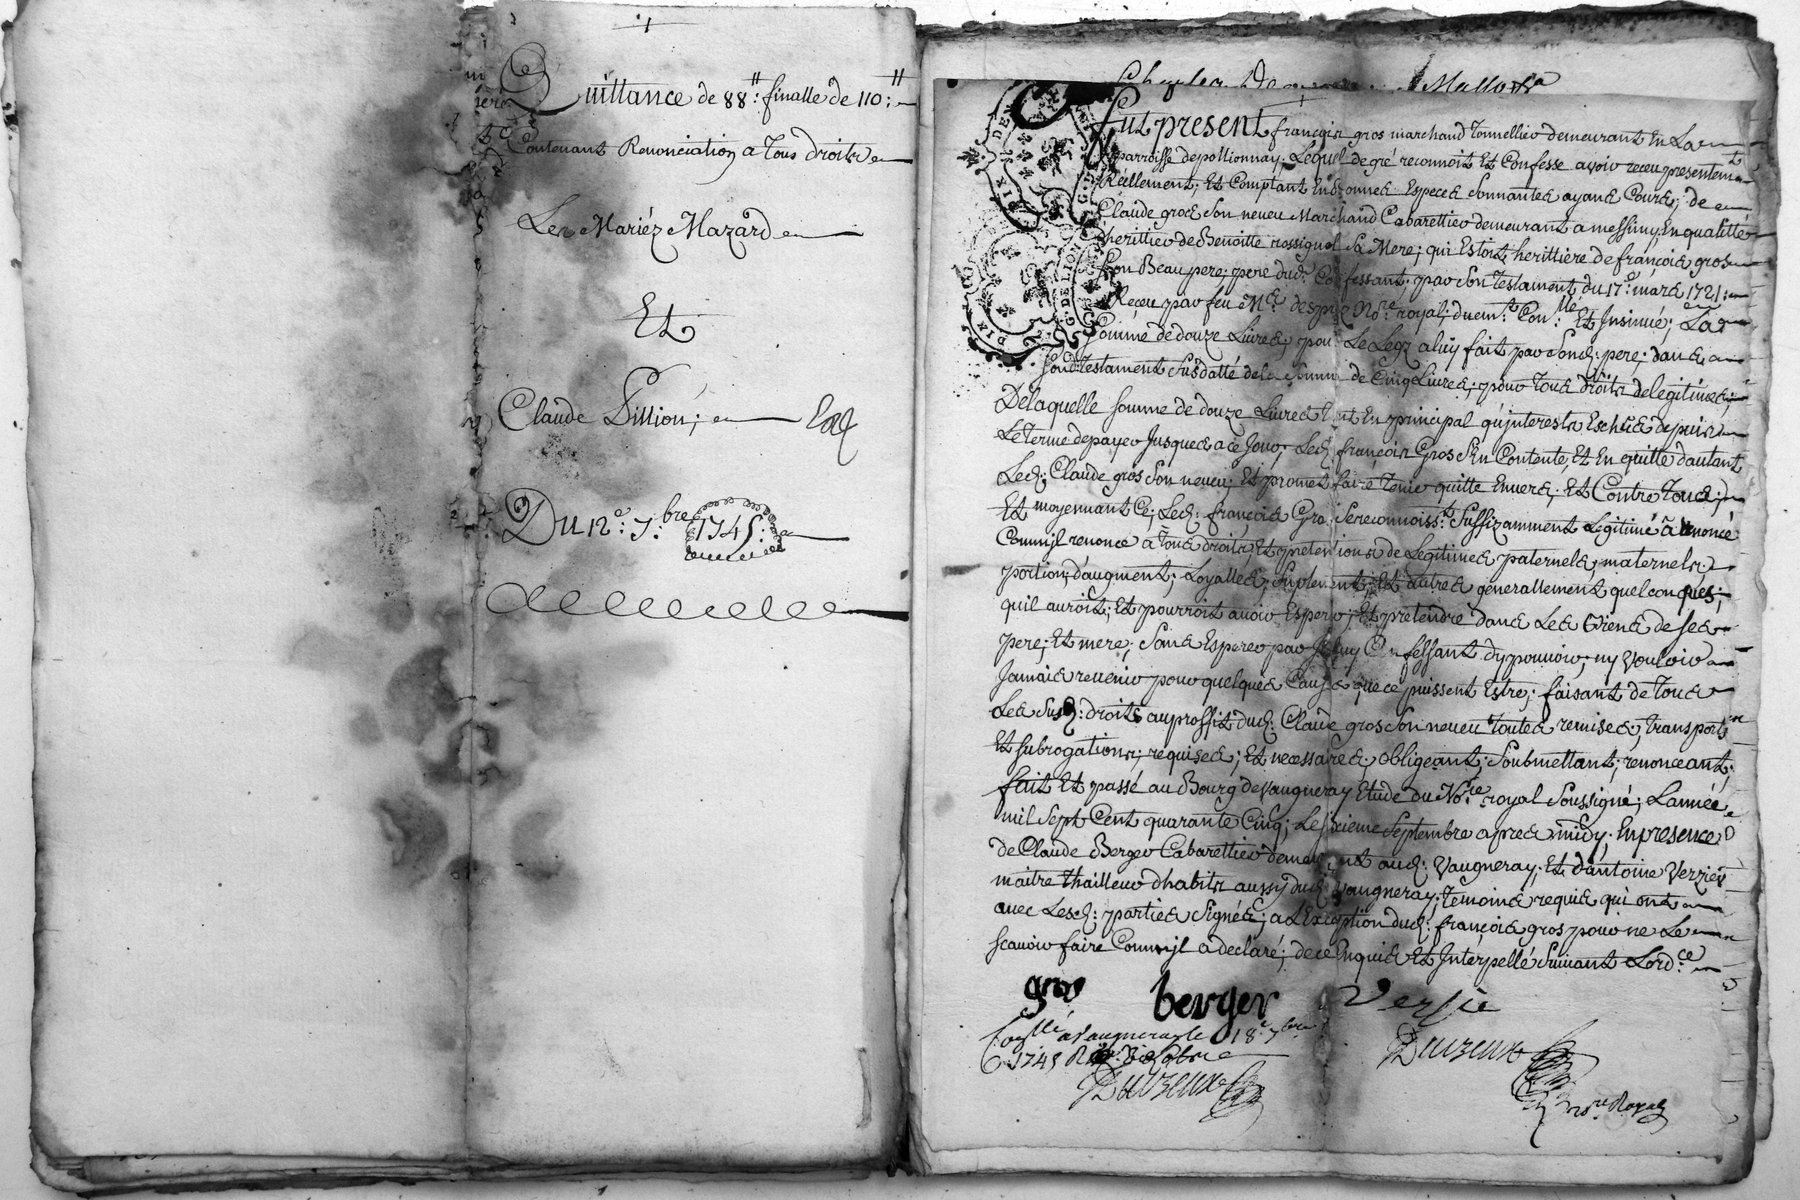 Quittance de 88ᴴ: finalle de 110:ᴴ
Contenant Renonciation a tous droits
Les Mariéz Mazard
Et
Claude Pillion;
Du 12ᵉ: 7.bre 1745:
Fut present françois gros marchand tonnellier demeurant En La
parroisse de pollionnay; Lequel de gré reconnoit Et Confesse avoir receu presentemᵗ
Reellement; Et Comptant En bonnes Especes sonnantes ayans Cours; de
Claude gros son neveu Marchand Cabarettier demeurant a messimy, En qualitté
d'herittier de Benoitte rossignol sa Mere; qui Estoit herittiere de françois gros
son Beau pere; pere dud: Confessant; par son testament du 17ᵉ: mars 1721:
Receu par feu Mᵉ: No.re royal; duem.ᵗ Con.ˡˡᵉ Et Insinué; La
somme de douze Livres; pour Le Legz a luy fait par sond: pere; dans
sond: testament susdatté de la somme de Cinq Livres; pour tous droits de legitimes;
De laquelle somme de douze Livres tant En principal qu'interests Escheus depuis
Le terme de payer Jusques a ce Jour; Led: françois Gros s'En Contente, Et En quitte d'autant
Led: Claude gros son neveu; Et promet faire tenir quitte Envers; Et Contre tous;
Et moyennant Ce; Led: françois Gros se reconnoiss.ᵗ suffizamment Legitimé a renoncé
Comm'jl renonce a tous droits Et pretentions de Legitimes paternels, maternels
portion d'augment; Loyalles; suplement; Et autres generallement quelconques;
qu'il auroit; Et pourroit avoir Esperer; Et pretendre dans Les Biens de ses
pere; Et mere; sans Esperer par Confessant d'y pouvoir; ny vouloir
Jamais revenir pour quelques Causes que ce puissent Estre; faisant de tous
Les susd: droits au proffit dud: Claude gros son neveu toutes remises; transports
Et subrogations; requises; Et necessaires; obligeant; soubmettant; renonceant;
fait Et passé au Bourg de vaugneray Etude du No.re royal soussigné; L'année
mil sept Cent quarante Cinq; Le sixieme septembre apres midy; En presence
de Claude Berger Cabarettier demeurant aud: vaugneray; Et d'antoine Verzier
maitre thailleur d'habits aussy dud: vaugneray; temoins requis qui ont
avec Lesd: parties signés; a L'Exception dud: françois gros pour ne Le
scavoir faire Comm'jl a declaré; de ce Enquis Et Interpellé suivant L'ord.ᶜᵉ
gros berger Versie
Con.ˡˡé a vaugneray le 18ᵉ 7bre
1745
no.re Royal